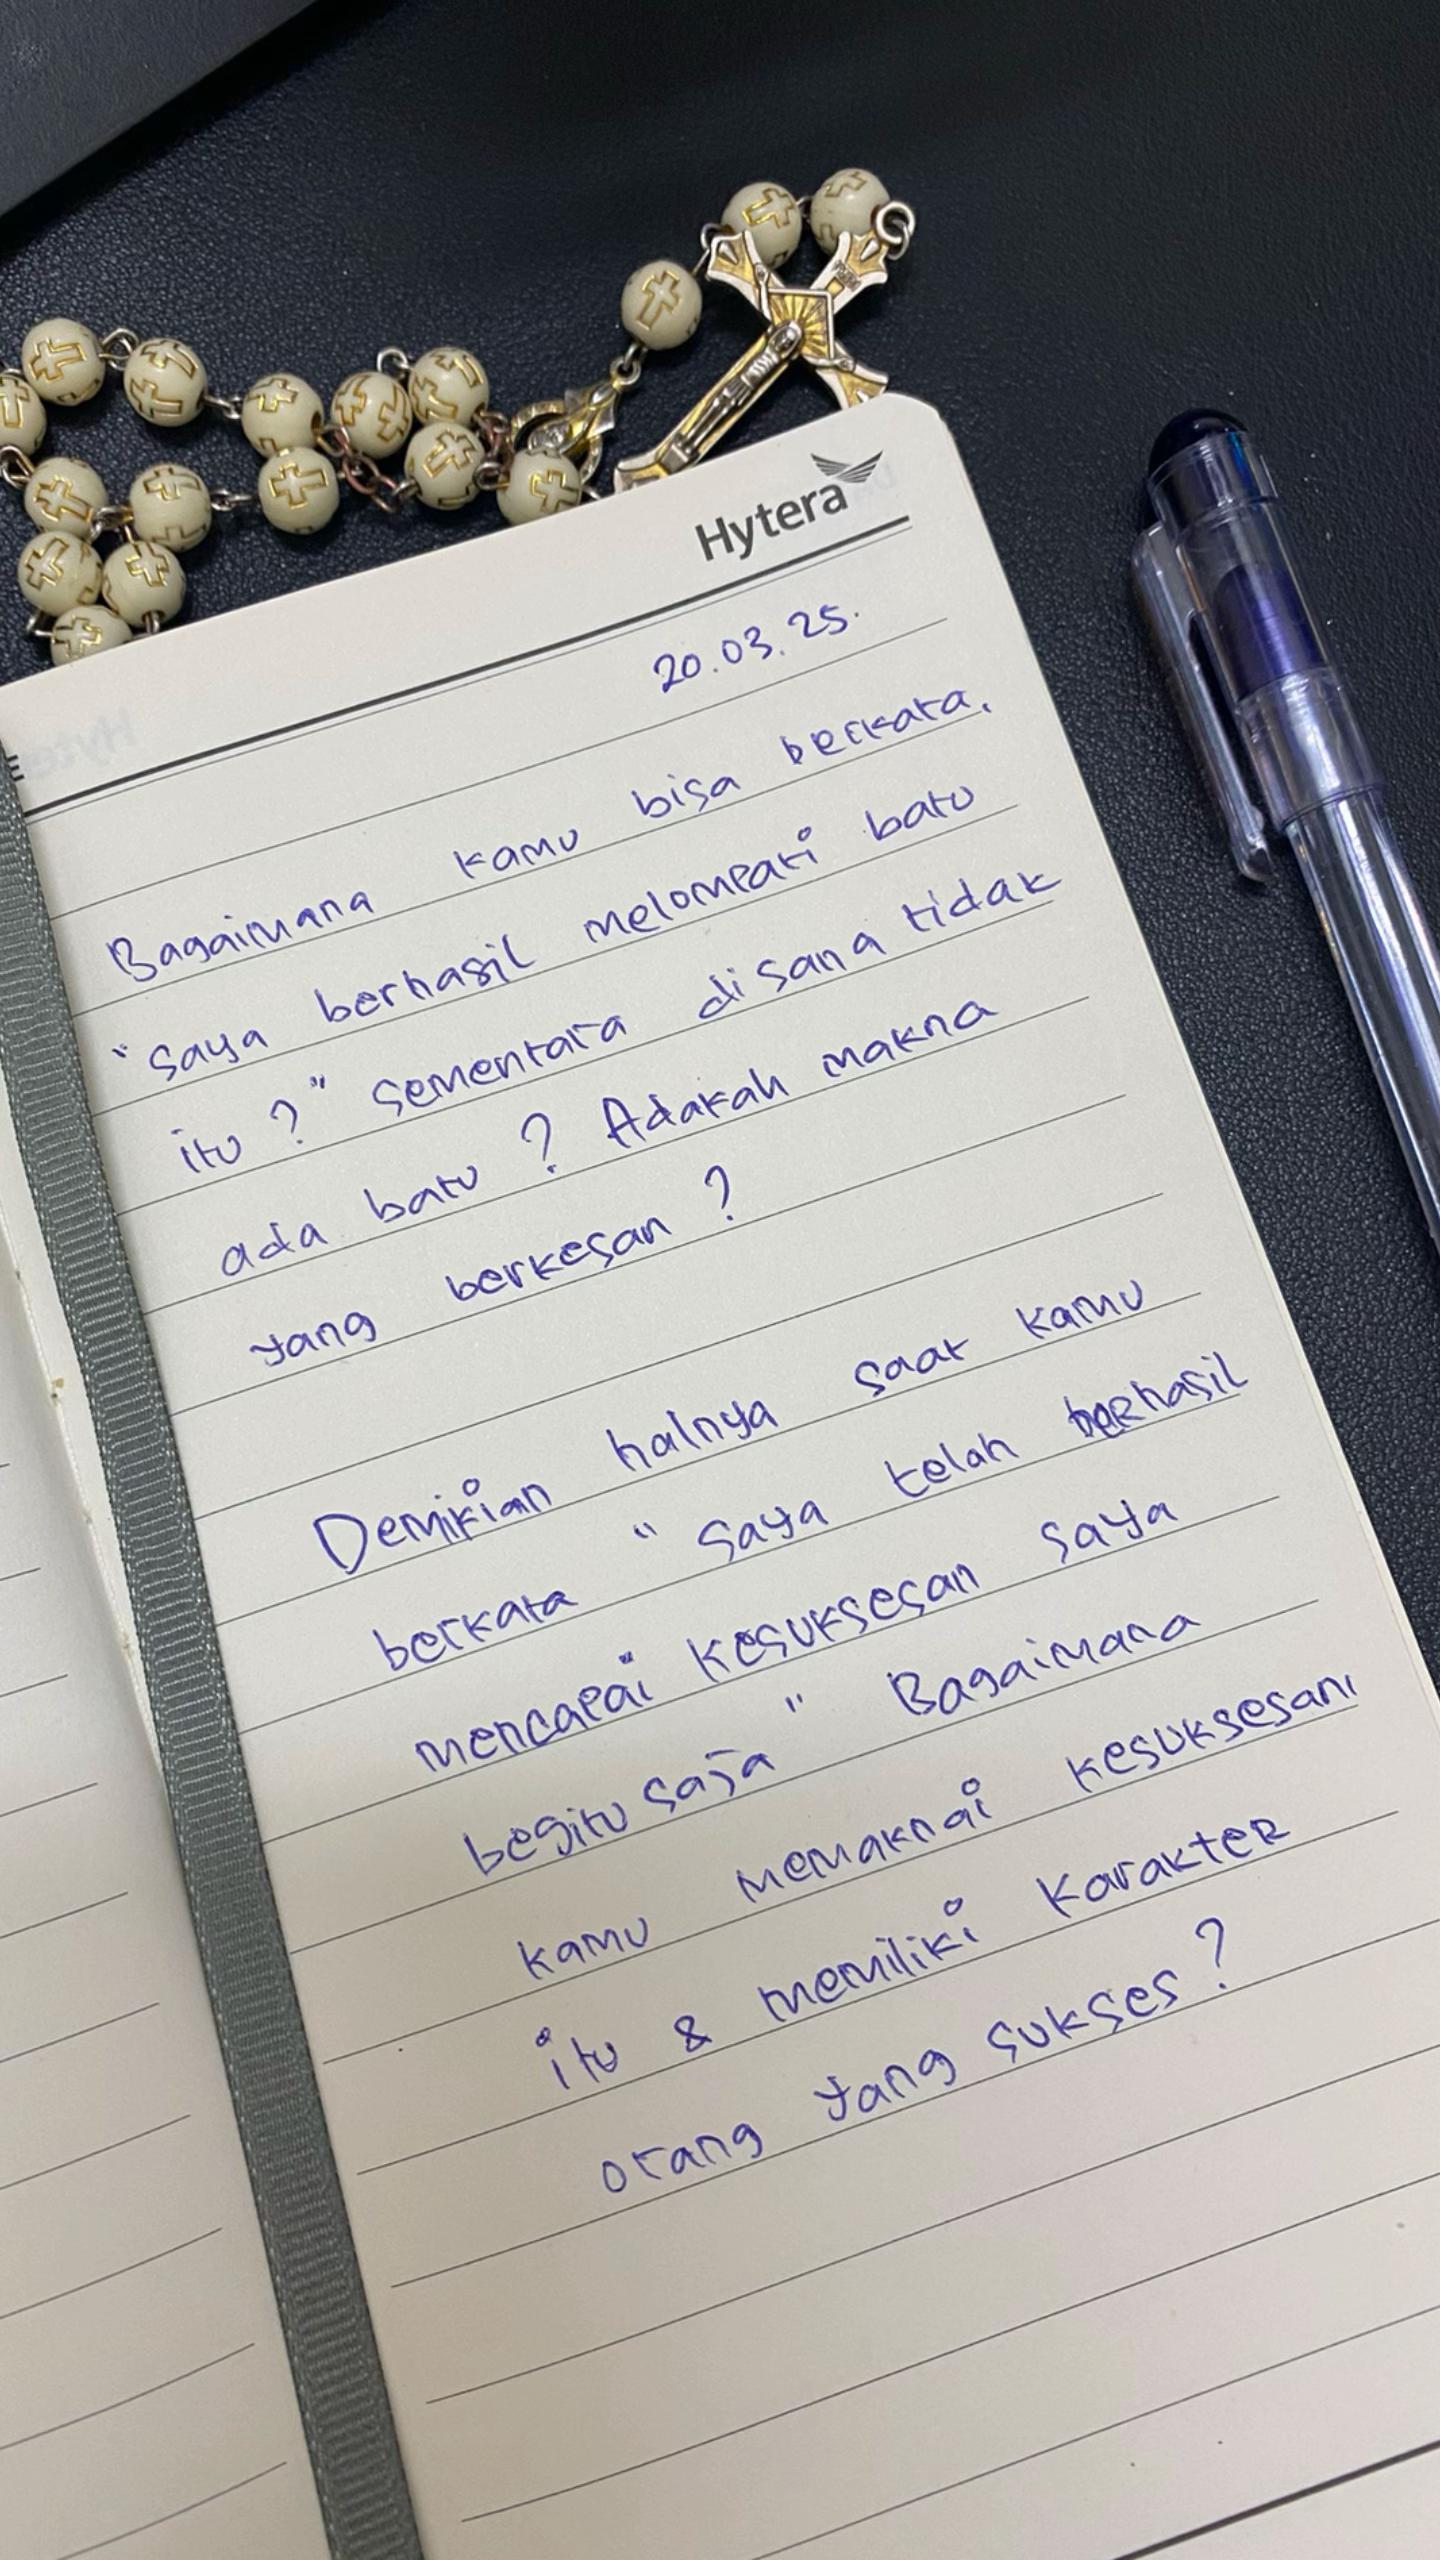 Hytera
20.03.25.
Bagaimana kamu bisa berkata,
"saya berhasil melompati batu
itu?" sementara disana tidak
ada batu? Adakah makna
yang berkesan?
Demikian halnya saat kamu
berkata "saya telah berhasil
mencapai kesuksesan saya
begitu saja" Bagaimana
kamu memaknai kesuksesan
itu & memiliki karakter
orang yang sukses?